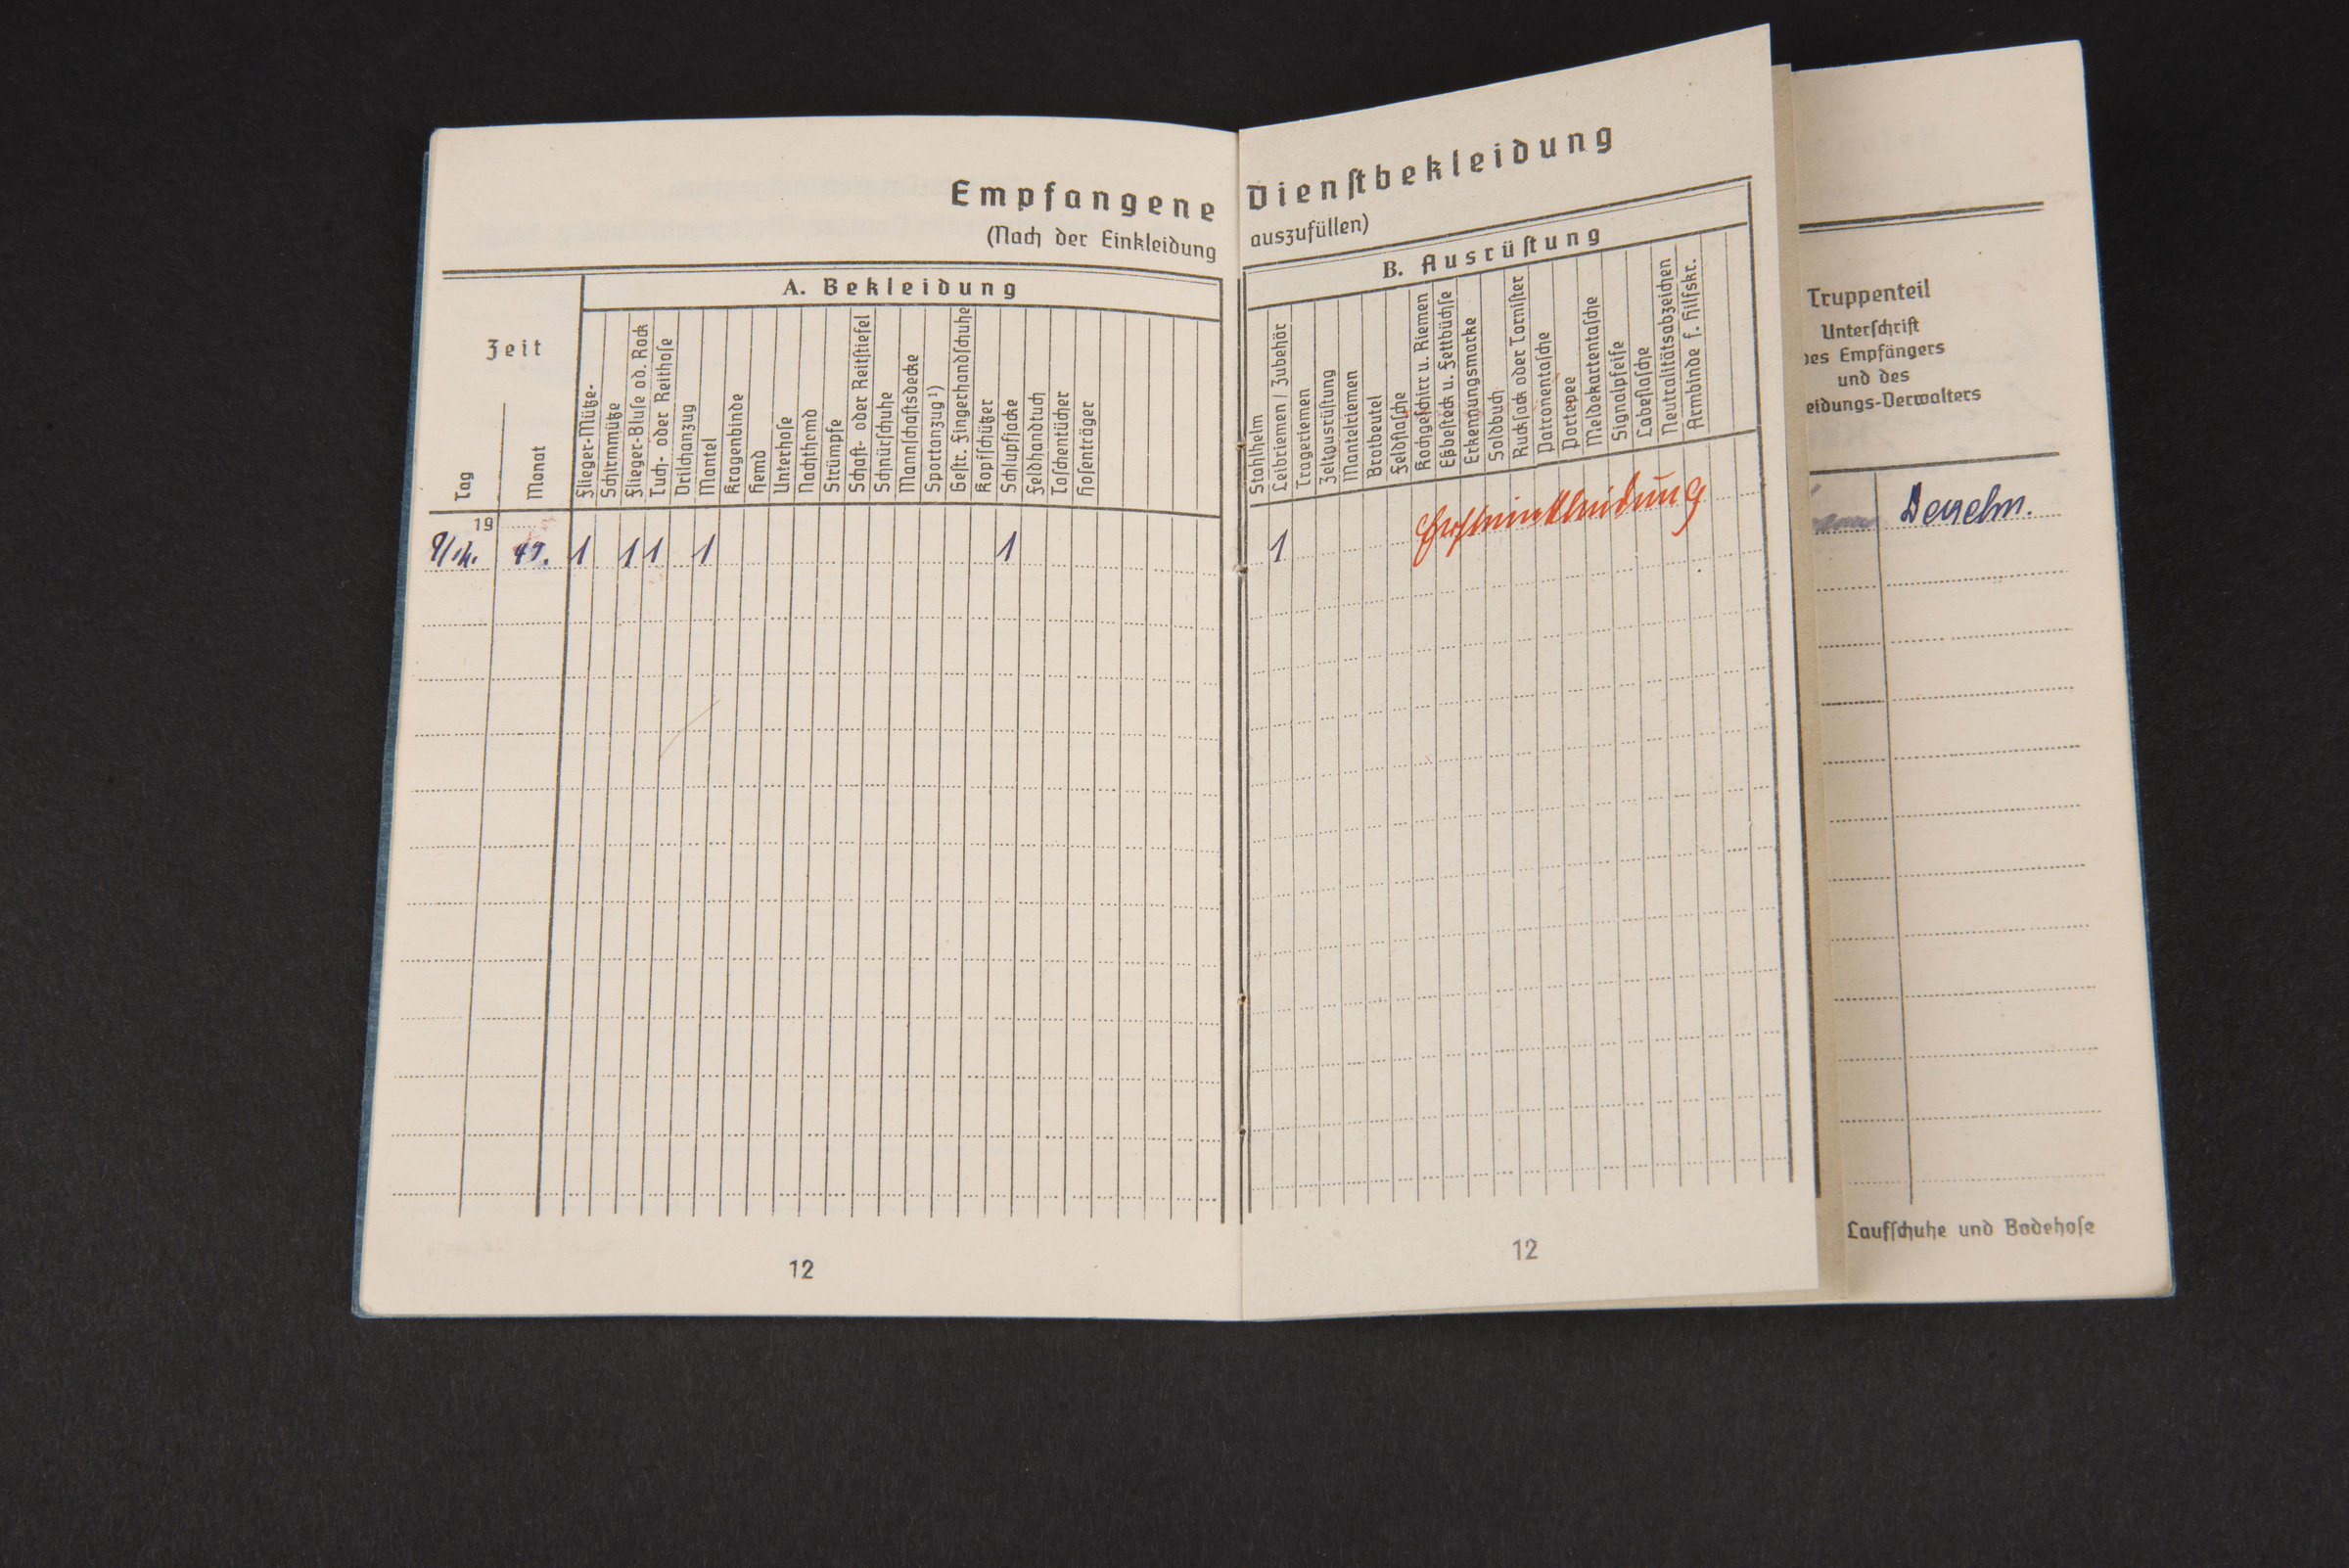 Empfangene Dienſtbekleidung
(Nach der Einkleidung auszufüllen)
A. Bekleidung
B. Ausrüſtung
Zeit
Tag
Monat
Flieger-Mütze-
Schirmmütze
Flieger-Bluſe od. Rock
Tuch- oder Reithoſe
Drilchanzug
Mantel
Kragenbinde
Hemd
Unterhoſe
Nachthemd
Strümpfe
Schaft- oder Reitſtiefel
Schnürſchuhe
Mannſchaftsdecke
Sportanzug ¹)
Geſtr. Fingerhandſchuhe
Kopfſchützer
Schlupfjacke
Feldhandtuch
Taſchentücher
Hoſenträger
Stahlhelm
Leibriemen / Zubehör
Trageriemen
Zeltausrüſtung
Mantelriemen
Brotbeutel
Feldflaſche
Kochgeſchirr u. Riemen
Eßbeſteck u. Fettbüchſe
Erkennungsmarke
Soldbuch
Ruckſack oder Torniſter
Patronentaſche
Portepee
Meldekartentaſche
Signalpfeife
Labeflaſche
Neutralitätsabzeichen
Armbinde f. Hilfskr.
19
1 1 1 1 1 1 Erſteinkleidung
12
12
Truppenteil
Unterſchrift
des Empfängers
und des
eidungs-Verwalters
Laufſchuhe und Badehoſe